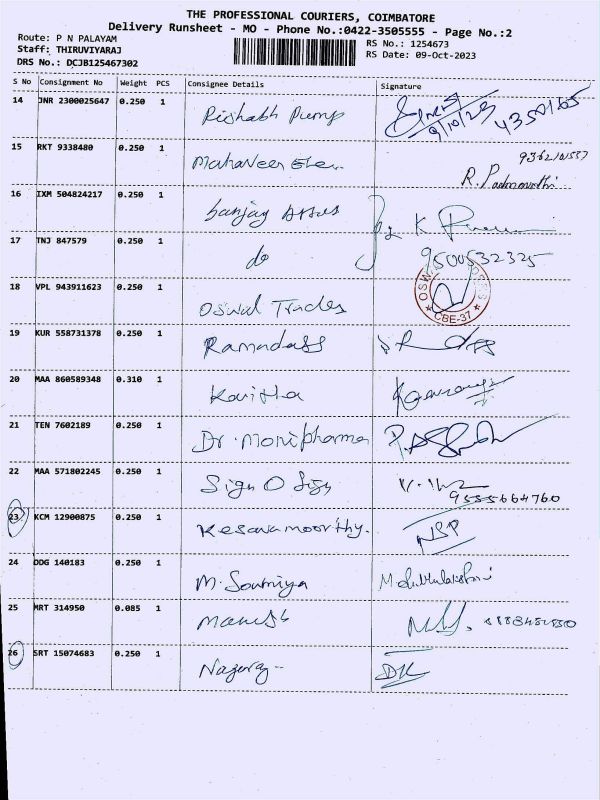 THE PROFESSIONAL COURIERS, COIMBATORE
Delivery Runsheet - MO - Phone No.:0422-3505555 - Page No.:2
Route: P N PALAYAM
Staff: THIRUVIYARAJ
DRS No.: DCJB125467302
RS No.: 1254673
RS Date: 09-Oct-2023
S No Consignment No Weight PCS Consignee Details Signature
14 JNR 2300025647 0.250 1 Rishabh Pump 9/10/23
15 RKT 9338480 0.250 1 Mahaveer R. Padmavathi
16 IXM 504824217 0.250 1 Sanjay K
17 TNJ 847579 0.250 1 do 9500532325
18 VPL 943911623 0.250 1 Oswal Trades CBE-37
19 KUR 558731378 0.250 1 Ramadass
20 MAA 860589348 0.310 1 Kavitha
21 TEN 7602189 0.250 1 Dr. Moni pharma
22 MAA 571802245 0.250 1 Sign O Sign 9555664760
23 KCM 12900875 0.250 1 Kesavamoorthy. NSP
24 DDG 140183 0.250 1 M. Soumiya
25 MRT 314950 0.085 1 Manish
26 SRT 15074683 0.250 1 Nagaraj DK